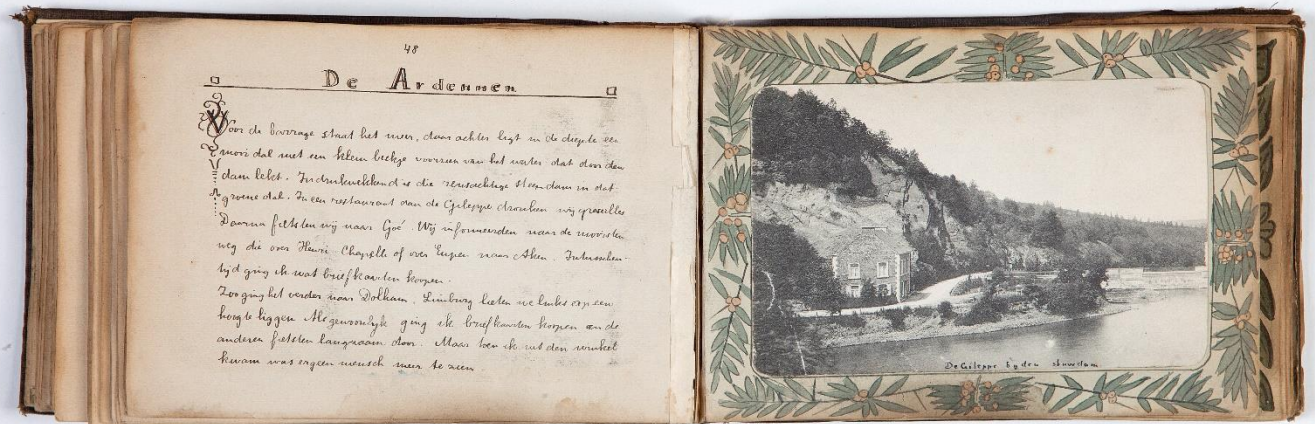 48
De Ardennen
Voor de barrage staat het meer, daar achter ligt in de diepte een
mooi dal met een klein beekje voorzien van het water dat door den
dam lekt. Indrukwekkend is die reusachtige steendam in dat
groene dal. In een restaurant aan de Gileppe dronken wij groseilles
Daarna fietsten wij naar Goé. Wij informeerden naar de mooisten
weg die over Henri Chapelle of over Eupen naar Aken. Intusschen-
tijd ging ik wat briefkaarten koopen.
Zoo ging het verder naar Dolhain, Limburg lieten we links op een
hoogte liggen Als gewoonlijk ging ik briefkaarten koopen en de
anderen fietsten langzaam door. Maar toen ik uit den winkel
kwam was er geen mensch meer te zien
De Gileppe by den stuwdam